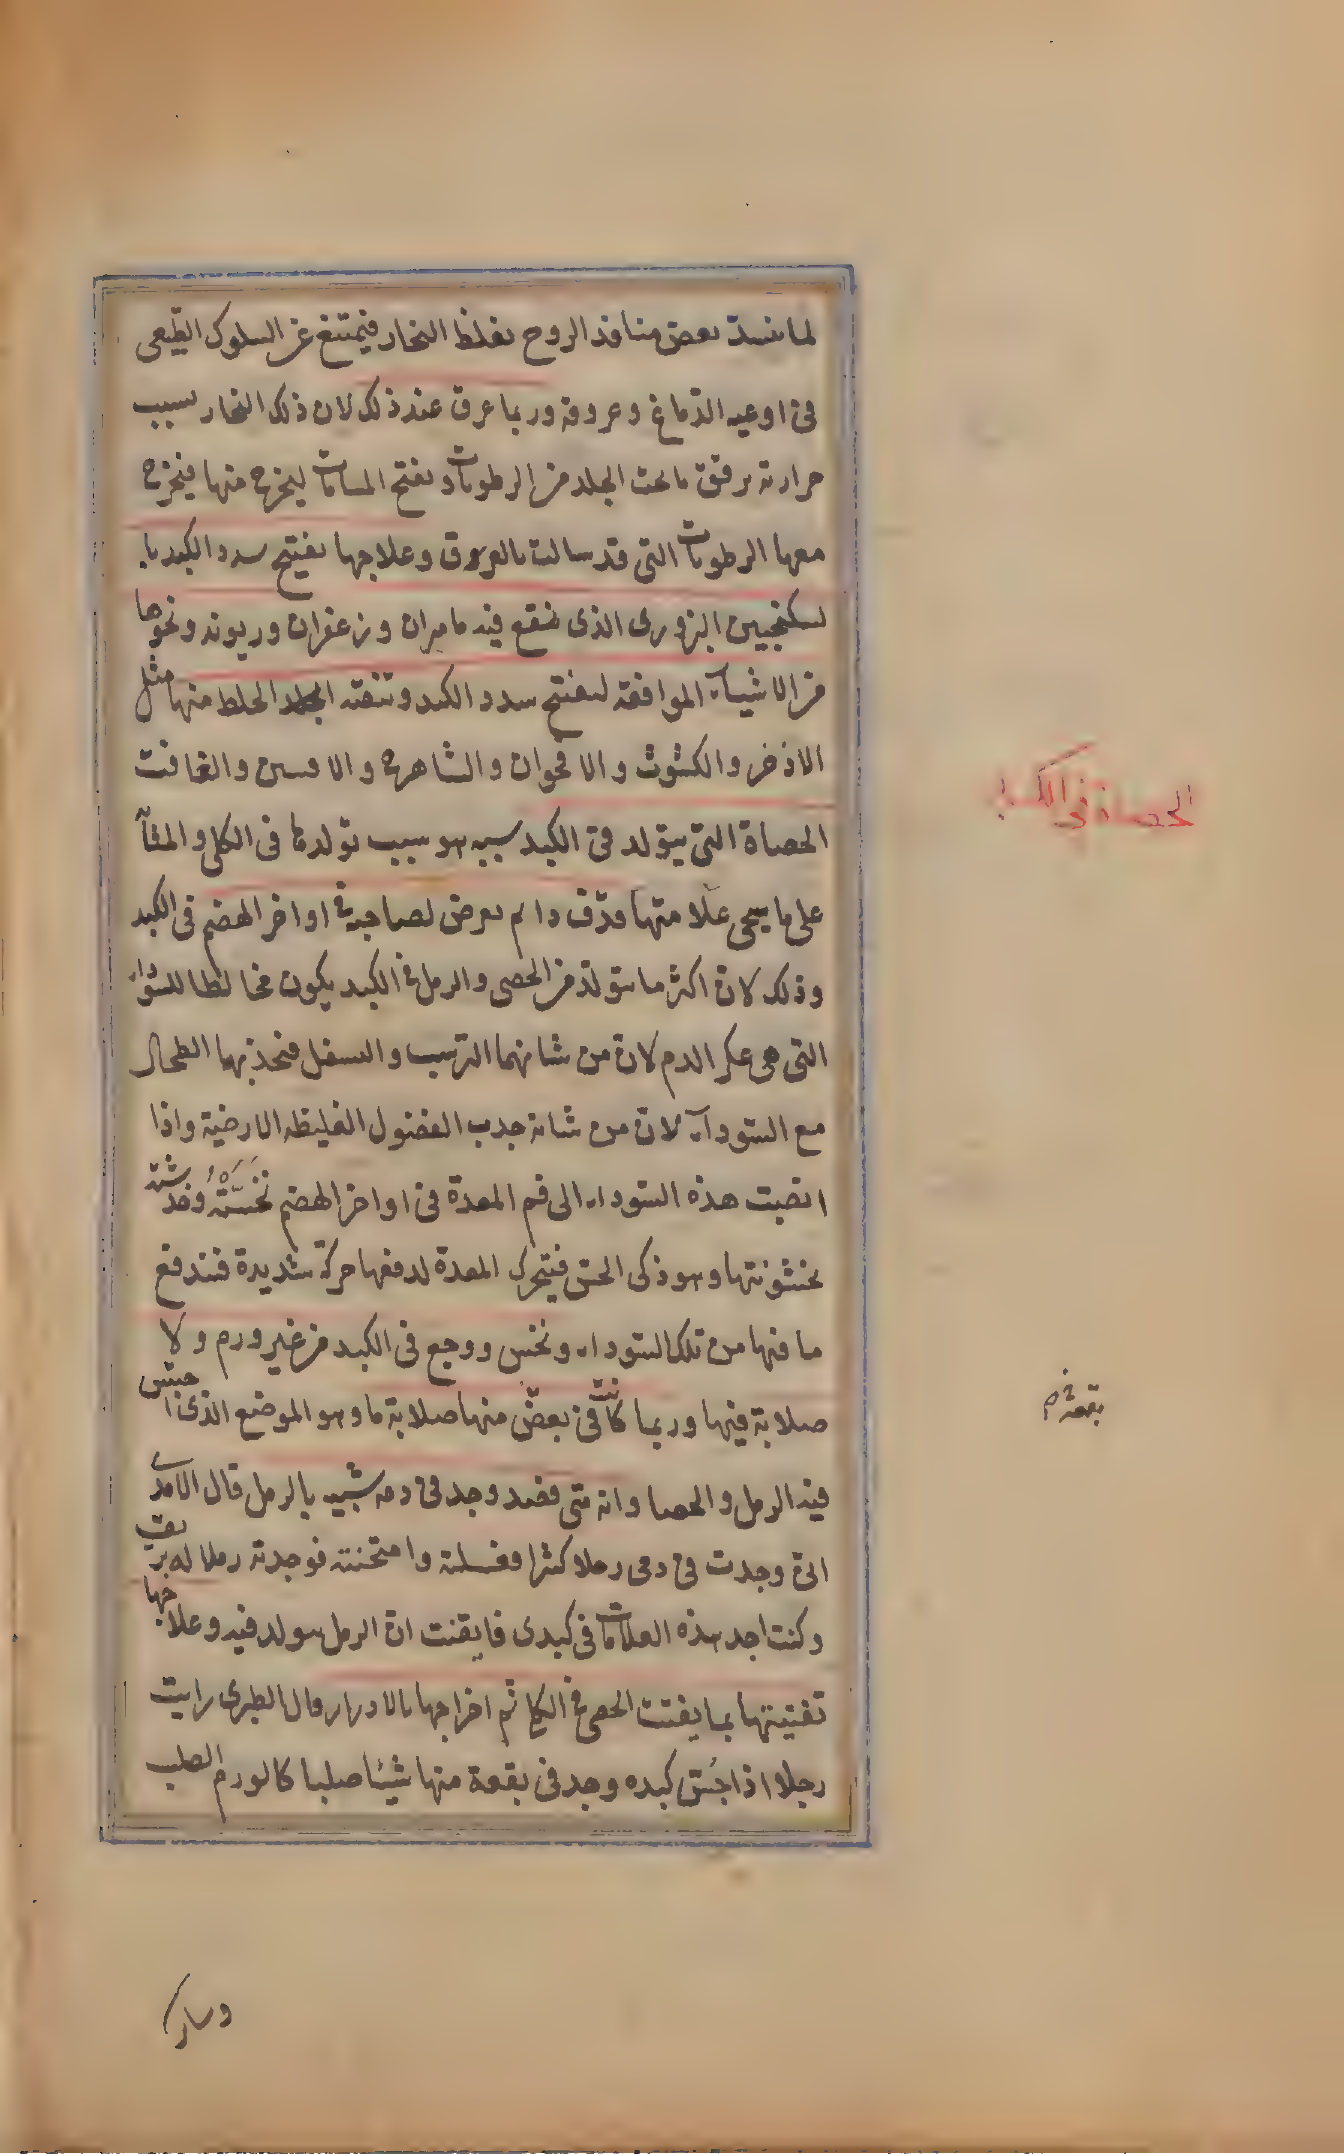 لما ينسد بعض منافذ الروح بغلظ البخار فيمتنع عن السلوك الطبيعى
فى اوعيه الدماغ وعروقه وربما عرق عند ذلك لان ذلك البخار بسبب
حرارته يرقق ما تحت الجلد من الرطوبات ويفتح المسامات ليخرج منها فيخرج
معها الرطوبات التى قد سالت بالعروق وعلاجها تفتيح سدد الكبد با
لسكنجبين البزورى الذى ينقع فيه ماميران وزعفران وريوند ونحوها
من الاشياء الموافقه لتفتيح سدد الكبد وتنقيه الخلط منها مثل
الاذخر والكشوث والاقحوان والشاهترج والافسنتين والغافت
الحصاة التى يتولد فى الكبد سببه هو سبب تولدها فى الكلى والمثا
على ما يجى علامتها قذف دايم يعرض لصاحبه فى اواخر الهضم فى الكبد
وذلك لان اكثر ما يتولد من الحصى والرمل فى الكبد يكون مخالطا للسوداء
التى هى عكر الدم لان من شانهما الترسب والتسفل فيجذبهما الطحال
مع السوداء لان من شانه جذب الفضول الغليظه الارضية واذا
انصبت هذه السوداء الى فم المعدة فى اواخر الهضم نخسته وخدشته
بخشونتها وهو ذكى الحس فيتحرك المعدة لدفعها حركة شديدة فيندفع
ما فيها من تلك السوداء ونخس ووجع فى الكبد من غير ورم ولا
صلابة فيها وربما كانت فى بعض منها صلابة ما وهو الموضع الذى احتبس
فيه الرمل والحصا وانه متى فصد وجد فى دمه شبيه بالرمل قال الآمدى
انى وجدت فى دمى رملا كثيرا فغسلته وامتحنته فوجدته رملا له بريق
وكنت اجد هذه العلامات فى كبدى فايقنت ان الرمل يتولد فيه وعلاجها
تفتيتها بما يفتت الحصى فى الكلى ثم اخراجها بالادرار قال الطبرى رايت
رجلا اذا جس كبده وجد فى بقعة منها شيئا صلبا كالورم الصلب
الحصاة فى الكبد